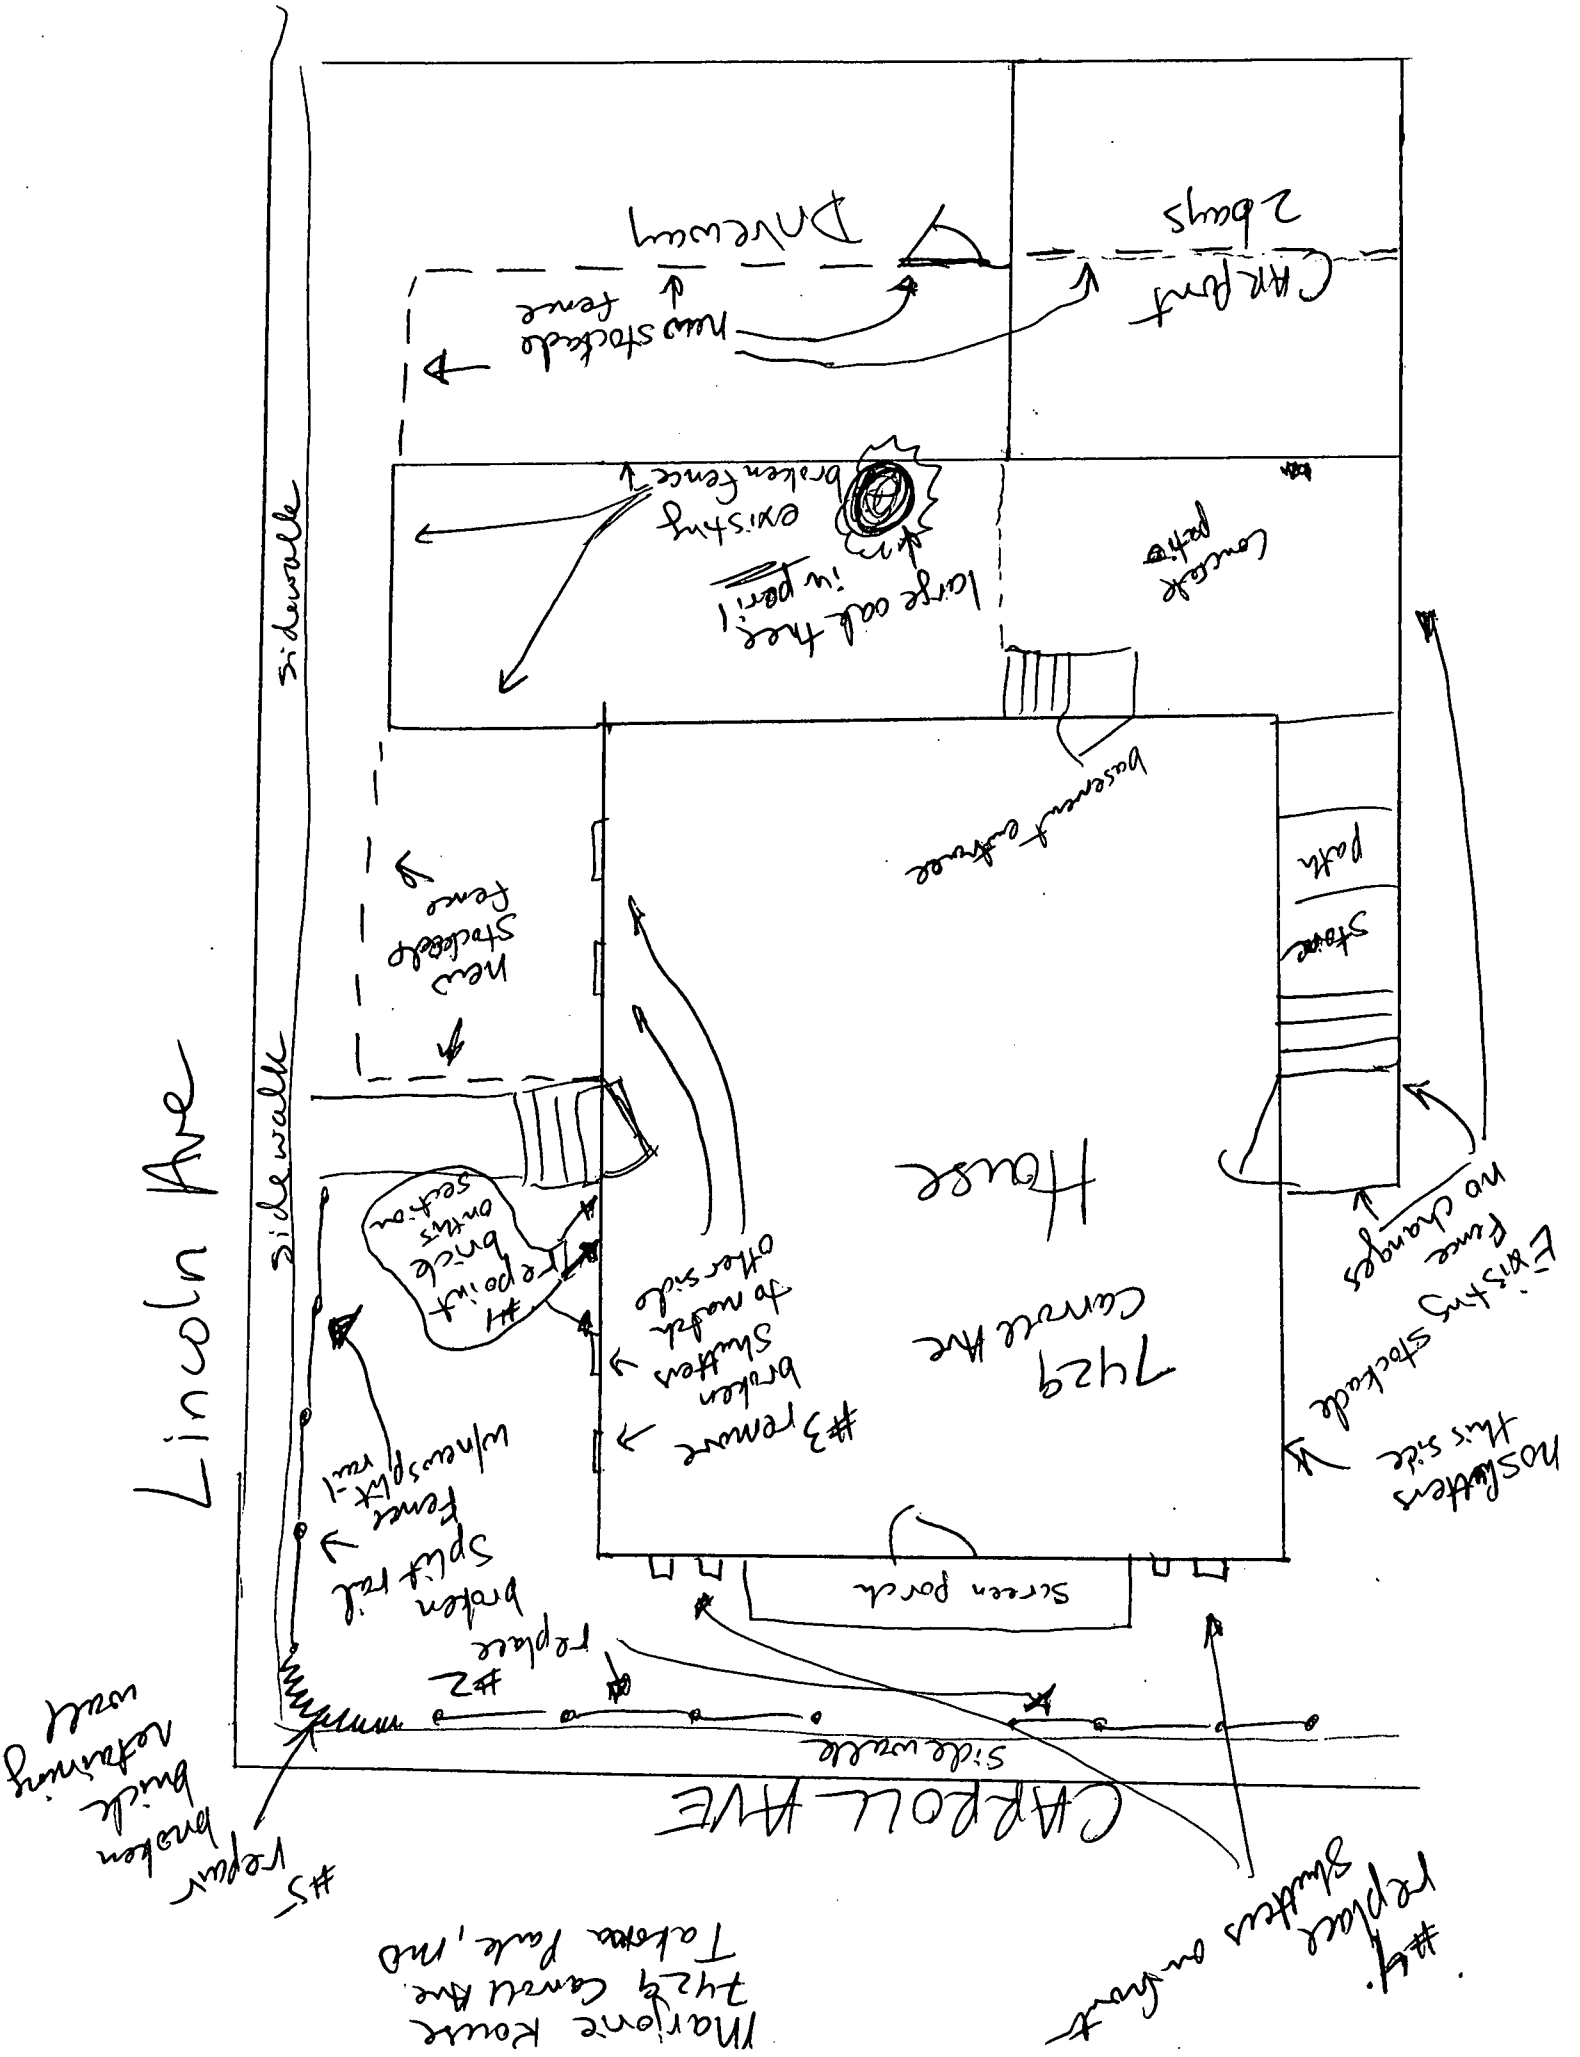 Marjorie Rouse
7429 Carroll Ave.
Takoma Park, MD
#4
replace
shutters on front
#5
repair
broken
brick
retaining
wall
CARROLL AVE
sidewalk
#2
replace
broken
split rail
Fence
w/new split
rail
screen porch
no shutters
this side
Existing stockade
Fence
no changes
#3 remove
broken
shutters
to match
other side
7429
Carroll Ave
House
#1
repoint
brick
on this
section
Lincoln Ave
sidewalk
sidewalk
new
stockade
fence
stone
path
basement entrance
large oak tree,
in peril
existing
broken fence
concrete
patio
new stockade
fence
Driveway
CAR port
2 bays